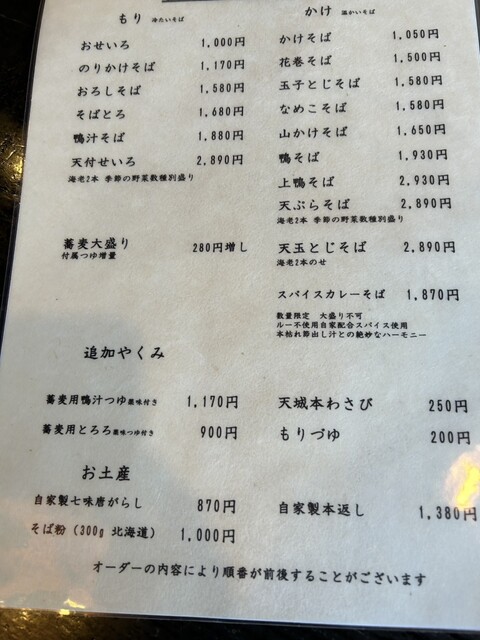 もり 冷たいそば
おせいろ 1,000円
のりかけそば 1,170円
おろしそば 1,580円
そばとろ 1,680円
鴨汁そば 1,880円
天付せいろ 2,890円
海老2本 季節の野菜数種別盛り
蕎麦大盛り 280円増し
付属つゆ増量
かけ 温かいそば
かけそば 1,050円
花巻そば 1,500円
玉子とじそば 1,580円
なめこそば 1,580円
山かけそば 1,650円
鴨そば 1,930円
上鴨そば 2,930円
天ぷらそば 2,890円
海老2本 季節の野菜数種別盛り
天玉とじそば 2,890円
海老2本のせ
スパイスカレーそば 1,870円
数量限定 大盛り不可
ルー不使用自家配合スパイス使用
本枯れ節出し汁との絶妙なハーモニー
追加やくみ
蕎麦用鴨汁つゆ薬味付き 1,170円
蕎麦用とろろ薬味つゆ付き 900円
天城本わさび 250円
もりづゆ 200円
お土産
自家製七味唐がらし 870円
そば粉(300g 北海道) 1,000円
自家製本返し 1,380円
オーダーの内容により順番が前後することがございます